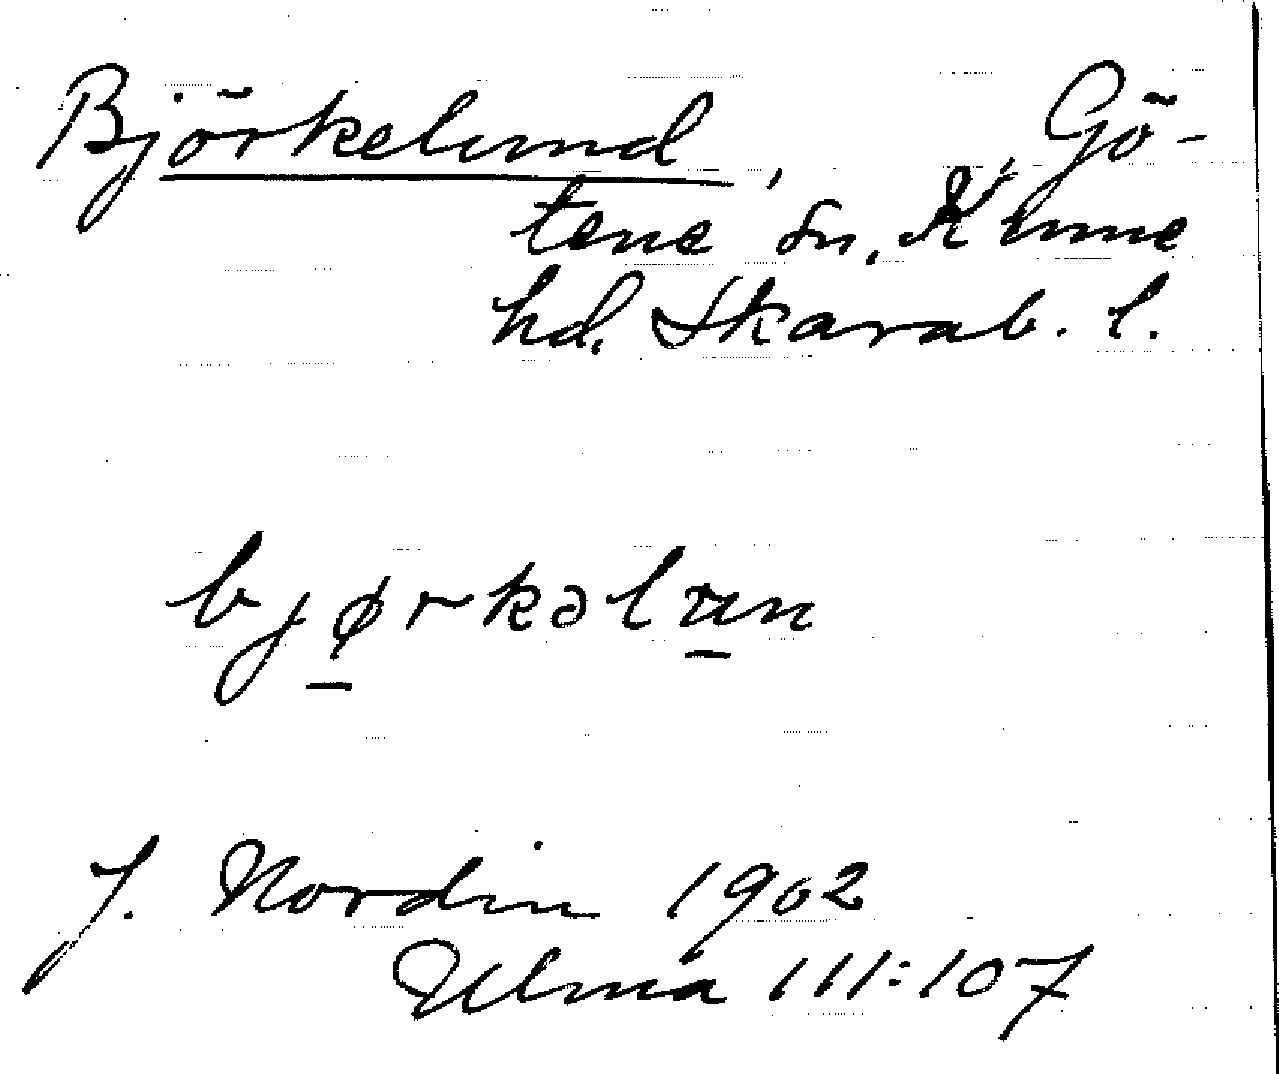 Björkelund, Gö-
tene sn, Kinne
hd. Skarab. l.
bjørkəlun
J. Nordin 1902
Ulma 111:107